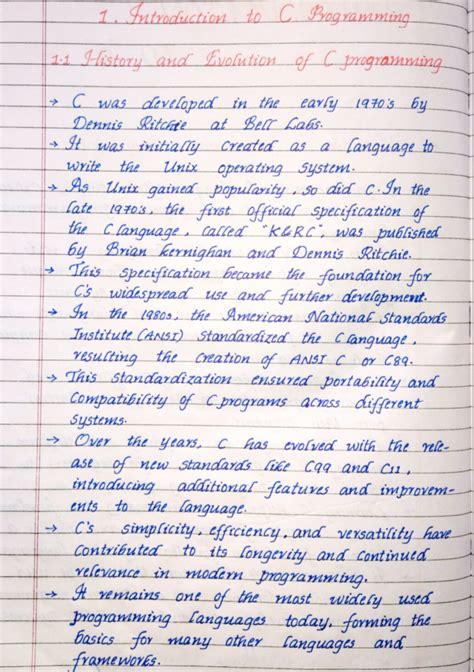 1. Introduction to C Programming
1.1 History and Evolution of C programming
→ C was developed in the early 1970's by
Dennis Ritchie at Bell Labs.
→ It was initially created as a language to
write the Unix operating system.
→ As Unix gained popularity, so did C. In the
late 1970's, the first official specification of
the C language, called "K&RC", was published
by Brian Kernighan and Dennis Ritchie.
→ This specification became the foundation for
C's widespread use and further development.
→ In the 1980s, the American National Standards
Institute (ANSI) standardized the C language,
resulting the creation of ANSI C or C89.
→ This standardization ensured portability and
compatibility of C programs across different
systems.
→ Over the years, C has evolved with the rele-
ase of new standards like C99 and C11,
introducing additional features and improvem-
ents to the language.
→ C's simplicity, efficiency, and versatility have
contributed to its longevity and continued
relevance in modern programming.
→ It remains one of the most widely used
programming languages today, forming the
basics for many other languages and
frameworks.